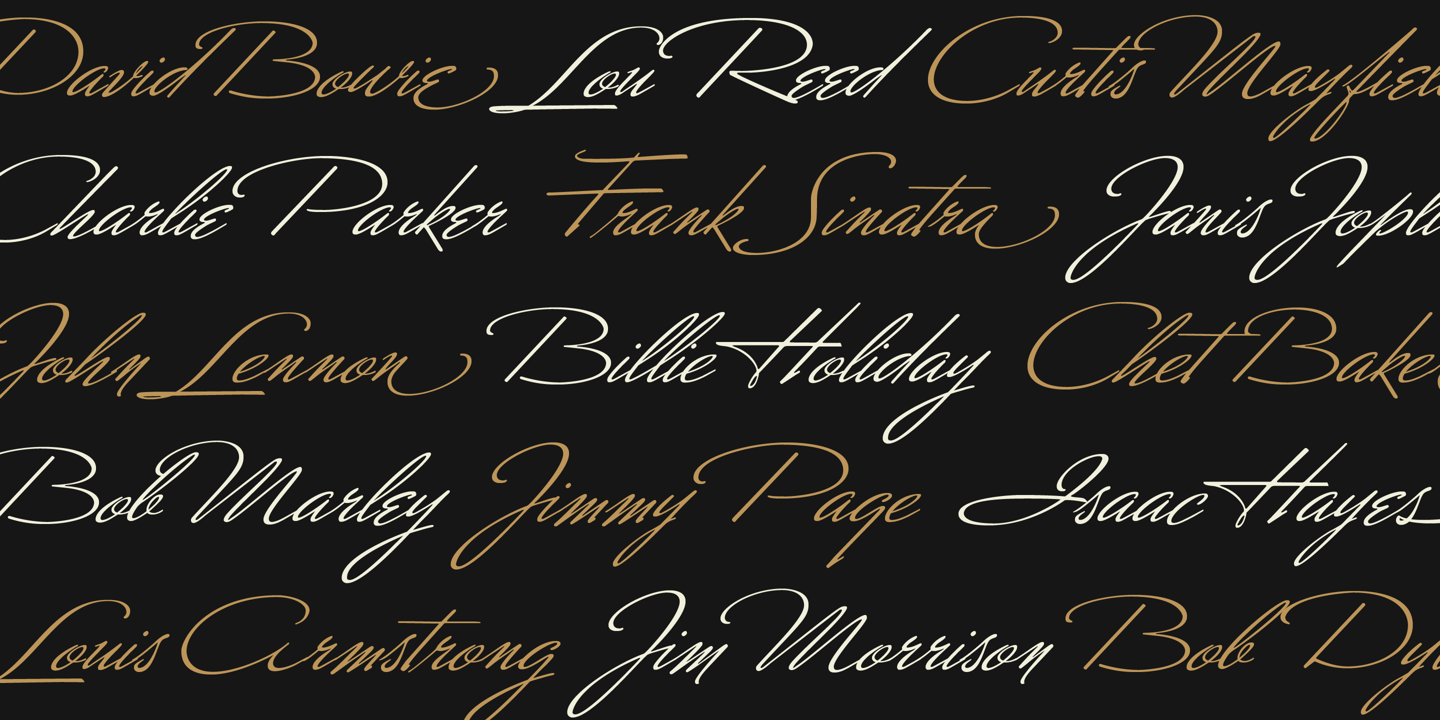 David Bowie Lou Reed Curtis Mayfiel
Charlie Parker Frank Sinatra Janis Jopli
John Lennon Billie Holiday Chet Baker
Bob Marley Jimmy Page Isaac Hayes
Louis Armstrong Jim Morrison Bob Dyl